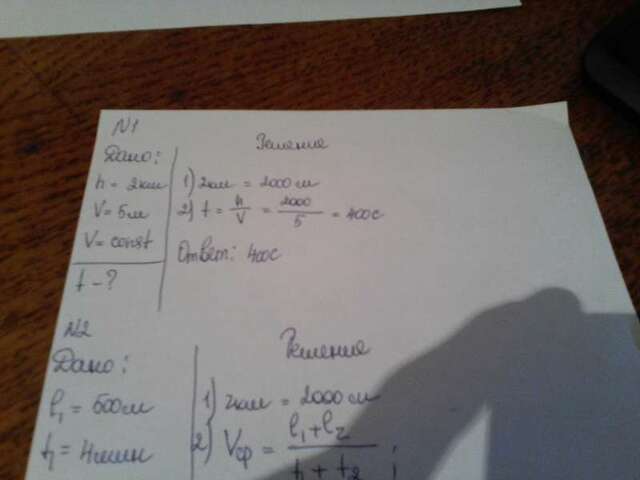 N1
Дано:
h = 2км
V = 5м
V = const
t - ?
Решение
1) 2км = 2000м
2) t = h/V = 2000/5 = 400с
Ответ: 400с
N2
Дано:
l₁ = 500м
t₁ = 4мин
Решение
1) 2км = 2000м
2) Vср = l₁+l₂ / t₁+t₂ ;